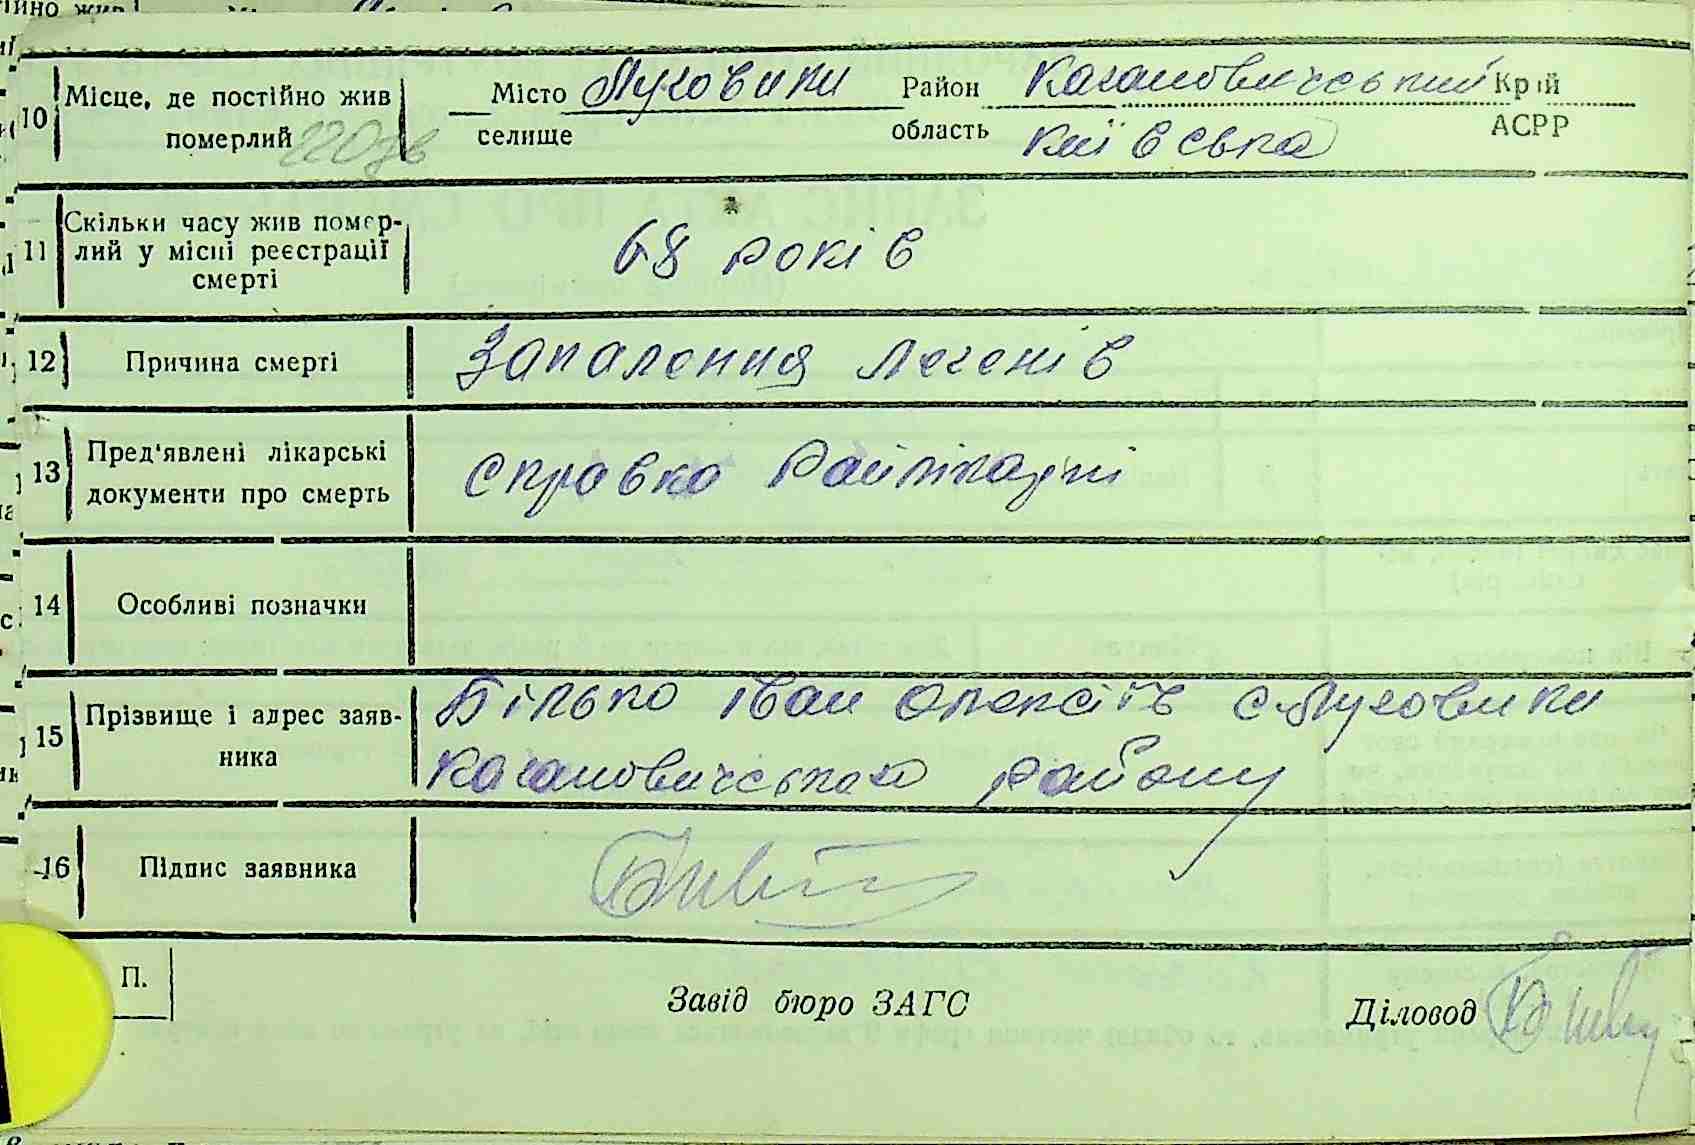 10 Місце, де постійно жив померлий
Місто селище Луговики Район Кагановичський Крій
область Київська АСРР
11 Скільки часу жив помер-
лий у місці реєстрації
смерті
68 років
12 Причина смерті Запалення легенів
13 Пред'явлені лікарські
документи про смерть
Справка Райлікарні
14 Особливі позначки
15 Прізвище і адрес заяв-
ника
Білько Іван Олексіїв с. Луговики
Кагановичського району
16 Підпис заявника
П.
Завід бюро ЗАГС
Діловод